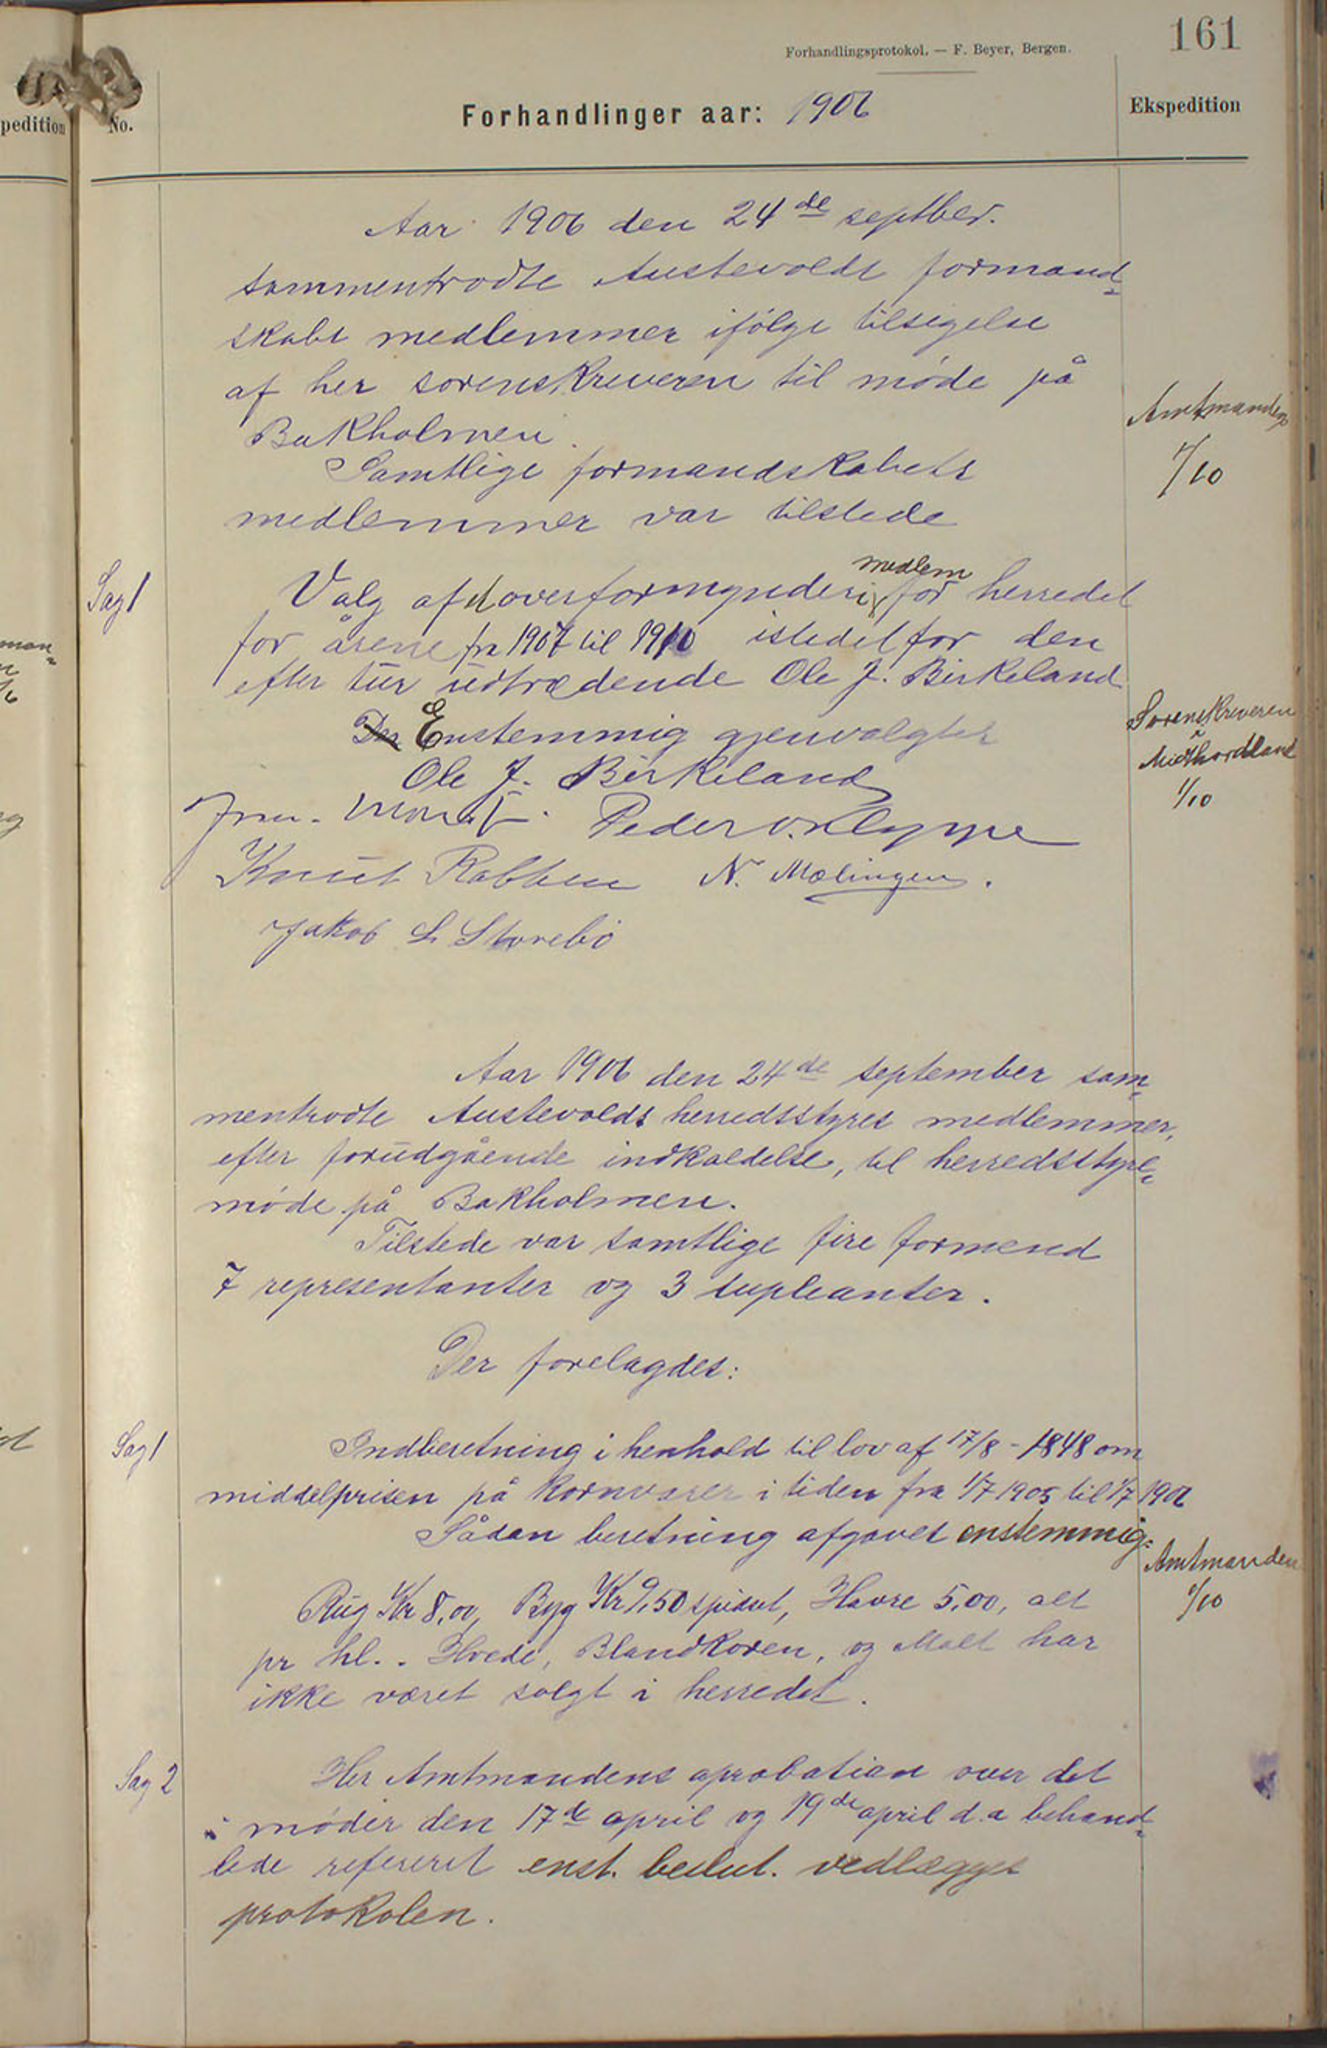 161
Forhandlingsprotokol. — F. Beyer, Bergen.
pedition
No.
Forhandlinger aar: 1906
Ekspedition
Aar 1906 den 24de septber.
sammentrodte Austevolds formand-
skabs medlemmer ifölge tilsigelse
af her sorenskreveren til møde på
Bakholmen.
Amtmanden
1/10
Samtlige formandskabets
medlemmer var tilstede
Sag 1
Valg af et overformynderi medlem for herredet
for årene fra 1907 til 1910 istedetfor den
efter tur udtrædende Ole J. Birkeland.
Der Enstemmig gjenvalgtes
Ole J. Birkeland
Sorenskreveren
i
Midthordland
1/10
Peder O. Kleppe
Knut Rabben N. Mølingen.
Jakob S. Storebö
Aar 1906 den 24de september sam-
mentrodte Austevolds herredsstyres medlemmer,
efter forudgående indkaldelse, til herredsstyre-
møde på Bakholmen.
Tilstede var samtlige fire formend
7 representanter og 3 supleanter.
Der forelagdes:
Sag 1
Indberetning i henhold til lov af 17/8 - 1848 om
middelprisen på kornvarer i tiden fra 1/7 1905 til 1/7 1906
Sådan beretning afgaves enstemmig:
Amtmanden
1/10
Rug Kr 8,00, Byg Kr 9,50 Havre 5,00, alt
pr hl.. Hvede, Blandkoren, og Malt har
ikke været solgt i herredet.
Sag 2
Her Amtmandens aprobation over det
i møder den 17de april og 19de april d.a behand-
lede refereret enst. beslut. vedlægges
protokolen.